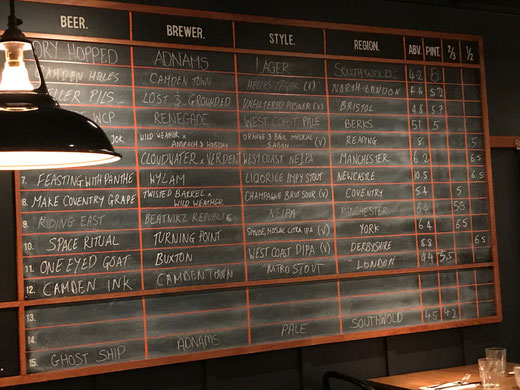 BEER. BREWER. STYLE. REGION. ABV. PINT. 2/3 1/2
DRY HOPPED ADNAMS LAGER SOUTHWOLD 4.2 5
CAMDEN HELLES CAMDEN TOWN HELLES LAGER (V) NORTH-LONDON 4.6 5.2
PILS LOST & GROUNDED UNFILTERED PILSNER (V) BRISTOL 4.8 5.2
WCP RENEGADE WEST COAST PALE BERKS 5
JOK WILD WEATHER x ANSPACH & HOBDAY ORANGE & BAY IMPERIAL SAISON (V) READING 8
CLOUDWATER x VERDENT WEST COAST NEIPA MANCHESTER 6.2 6.5
7. FEASTING WITH PANTHE WYLAM LIQORICE IMPY STOUT NEWCASTLE 10.5 6.5
8. MAKE COVENTRY GRAPE TWISTED BARREL x WILD WEATHER CHAMPAGNE BRUT SOUR (V) COVENTRY 5.4 5
9. RIDING EAST BEATNIKZ REPUBLIC NEIPA MANCHESTER 6.4
10. SPACE RITUAL TURNING POINT SIMCOE, MOSAIC CITRA IPA (V) YORK 6.4 6.5
11. ONE EYED GOAT BUXTON WEST COAST DIPA (V) DERBYSHIRE 8.8 6.5
12. CAMDEN INK CAMDEN TOWN NITRO STOUT LONDON 4.4 5.5
13.
14.
15. GHOST SHIP ADNAMS PALE SOUTHWOLD 4.5 4.2